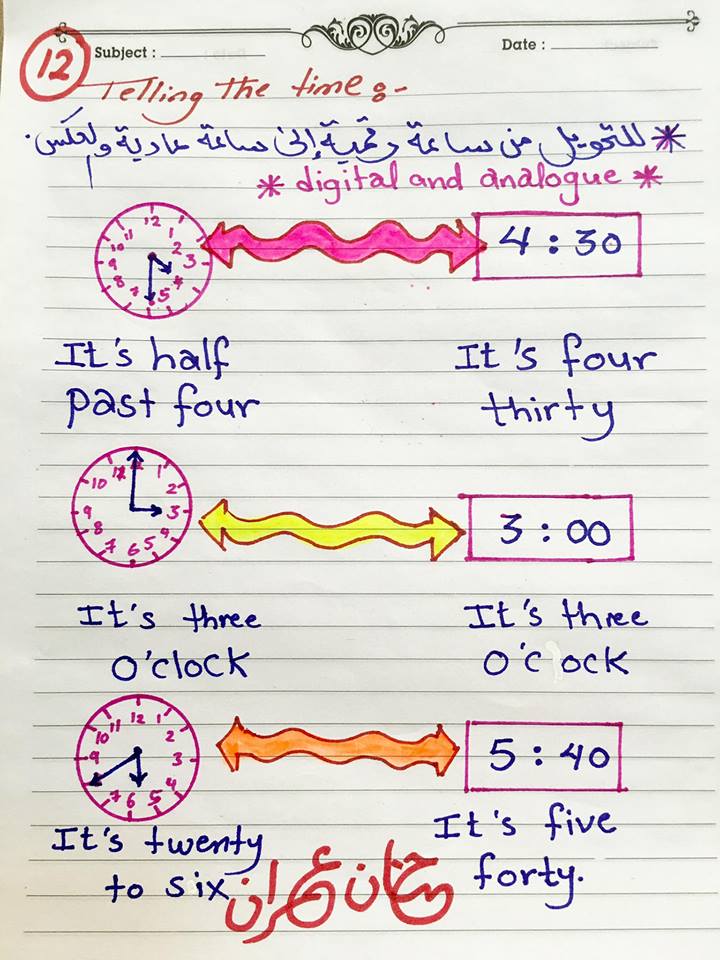 12
Subject :
Date :
Telling the time :-
* للتحويل من ساعة رقمية إلى ساعة عادية والعكس.
* digital and analogue *
12 1 2 3 4 5 6 7 8 9 10 11
4 : 30
It's half
past four
It's four
thirty
12 1 2 3 4 5 6 7 8 9 10 11
3 : 00
It's three
O'clock
It's three
O'c ock
12 1 2 3 4 5 6 7 9 10 11
5 : 40
It's twenty
to six
It's five
forty.
حنان عمران